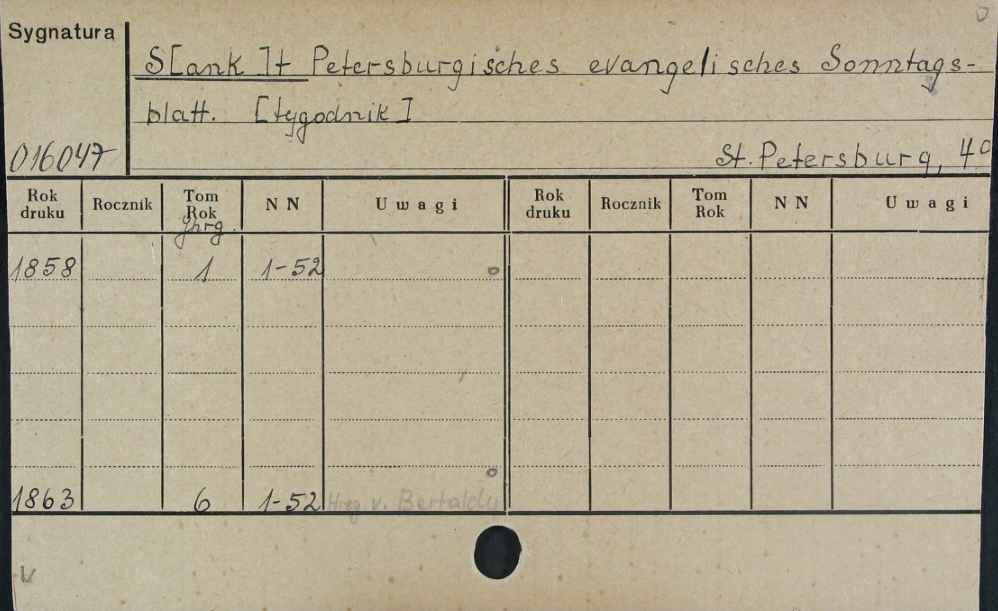 Sygnatura
S[ank]t Petersburgisches evangelisches Sonntags-
blatt. [tygodnik]
016047
St. Petersburg, 4°
Rok druku Rocznik Tom Rok Jhrg. NN Uwagi Rok druku Rocznik Tom Rok NN Uwagi
1858 1 1-52
1863 6 1-52 Hrsg. v. Bertoldy
V